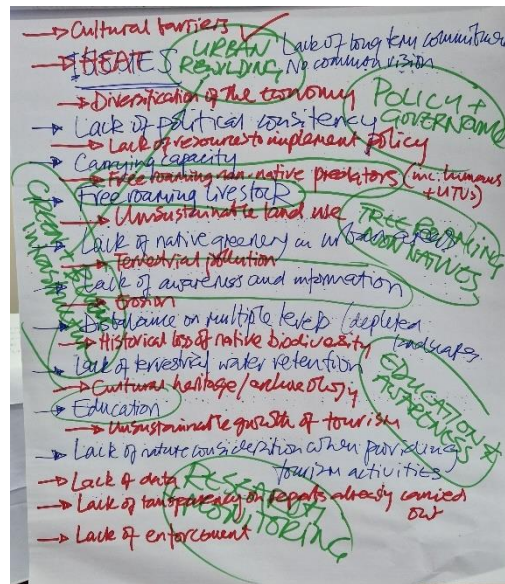 → Cultural barriers
→ HEAT
URBAN REBUILDING
Lack of long term commitment
No common vision
→ Diversification of the economy
POLICY + GOVERNANCE
→ Lack of political consitency
→ Lack of resources to implement policy
→ Carrying capacity
→ Free roaming non-native predators (inc. humans + UTVs)
→ Free roaming livestock
→ Unsustainable land use
FREE ROAMING NON NATIVES
→ Lack of native greenery in urban
→ Terrestrial pollution
→ Lack of awareness and information
→ Erosion
→ Disturbance on multiple levels (depleted landscapes
→ Historical loss of native biodiversity
→ Lack of terrestrial water retention
→ Cultural heritage/archaeology
EDUCATION & AWARENESS
→ Education
→ Unsustainable growth of tourism
→ Lack of nature consideration when providing tourism activities
→ Lack of data
RESEARCH MONITORING
→ Lack of transparency on reports already carried out
→ Lack of enforcement